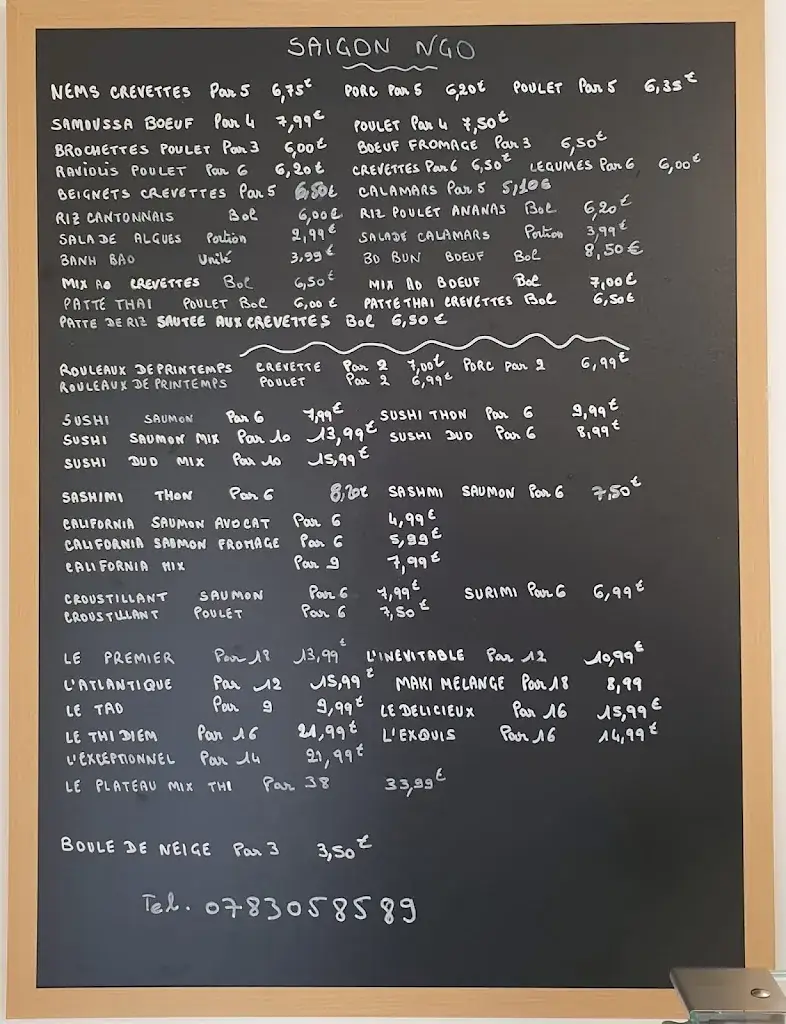 SAIGON NGO
NEMS CREVETTES Par 5 6,75€ PORC Par 5 6,20€ POULET Par 5 6,35€
SAMOUSSA BOEUF Par 4 7,99€ POULET Par 4 7,50€
BROCHETTES POULET Par 3 6,00€ BOEUF FROMAGE Par 3 6,50€
RAVIOLIS POULET Par 6 6,20€ CREVETTES Par 6 6,50€ LEGUMES Par 6 6,00€
BEIGNETS CREVETTES Par 5 6,50€ CALAMARS Par 5 5,10€
RIZ CANTONNAIS Bol 6,00€ RIZ POULET ANANAS Bol 6,20€
SALADE ALGUES Portion 2,99€ SALADE CALAMARS Portion 3,99€
BANH BAO Unité 3,99€ BO BUN BOEUF Bol 8,50€
MIX AO CREVETTES Bol 6,50€ MIX AO BOEUF Bol 7,00€
PATTE THAI POULET Bol 6,00€ PATTE THAI CREVETTES Bol 6,50€
PATTE DE RIZ SAUTEE AUX CREVETTES Bol 6,50€
ROULEAUX DE PRINTEMPS CREVETTE Par 2 7,00€ PORC par 2 6,99€
ROULEAUX DE PRINTEMPS POULET Par 2 6,99€
SUSHI SAUMON Par 6 7,99€ SUSHI THON Par 6 9,99€
SUSHI SAUMON MIX Par 10 13,99€ SUSHI DUO Par 6 8,99€
SUSHI DUO MIX Par 10 15,99€
SASHIMI THON Par 6 8,20€ SASHMI SAUMON Par 6 7,50€
CALIFORNIA SAUMON AVOCAT Par 6 4,99€
CALIFORNIA SAUMON FROMAGE Par 6 5,99€
CALIFORNIA MIX Par 9 7,99€
CROUSTILLANT SAUMON Par 6 7,99€ SURIMI Par 6 6,99€
CROUSTILLANT POULET Par 6 7,50€
LE PREMIER Par 18 13,99€ L'INEVITABLE Par 12 10,99€
L'ATLANTIQUE Par 12 15,99€ MAKI MELANGE Par 18 8,99
LE TAO Par 9 9,99€ LE DELICIEUX Par 16 15,99€
LE THI DIEM Par 16 21,99€ L'EXQUIS Par 16 14,99€
L'EXCEPTIONNEL Par 14 21,99€
LE PLATEAU MIX THI Par 38 33,99€
BOULE DE NEIGE Par 3 3,50€
Tel. 0783058589